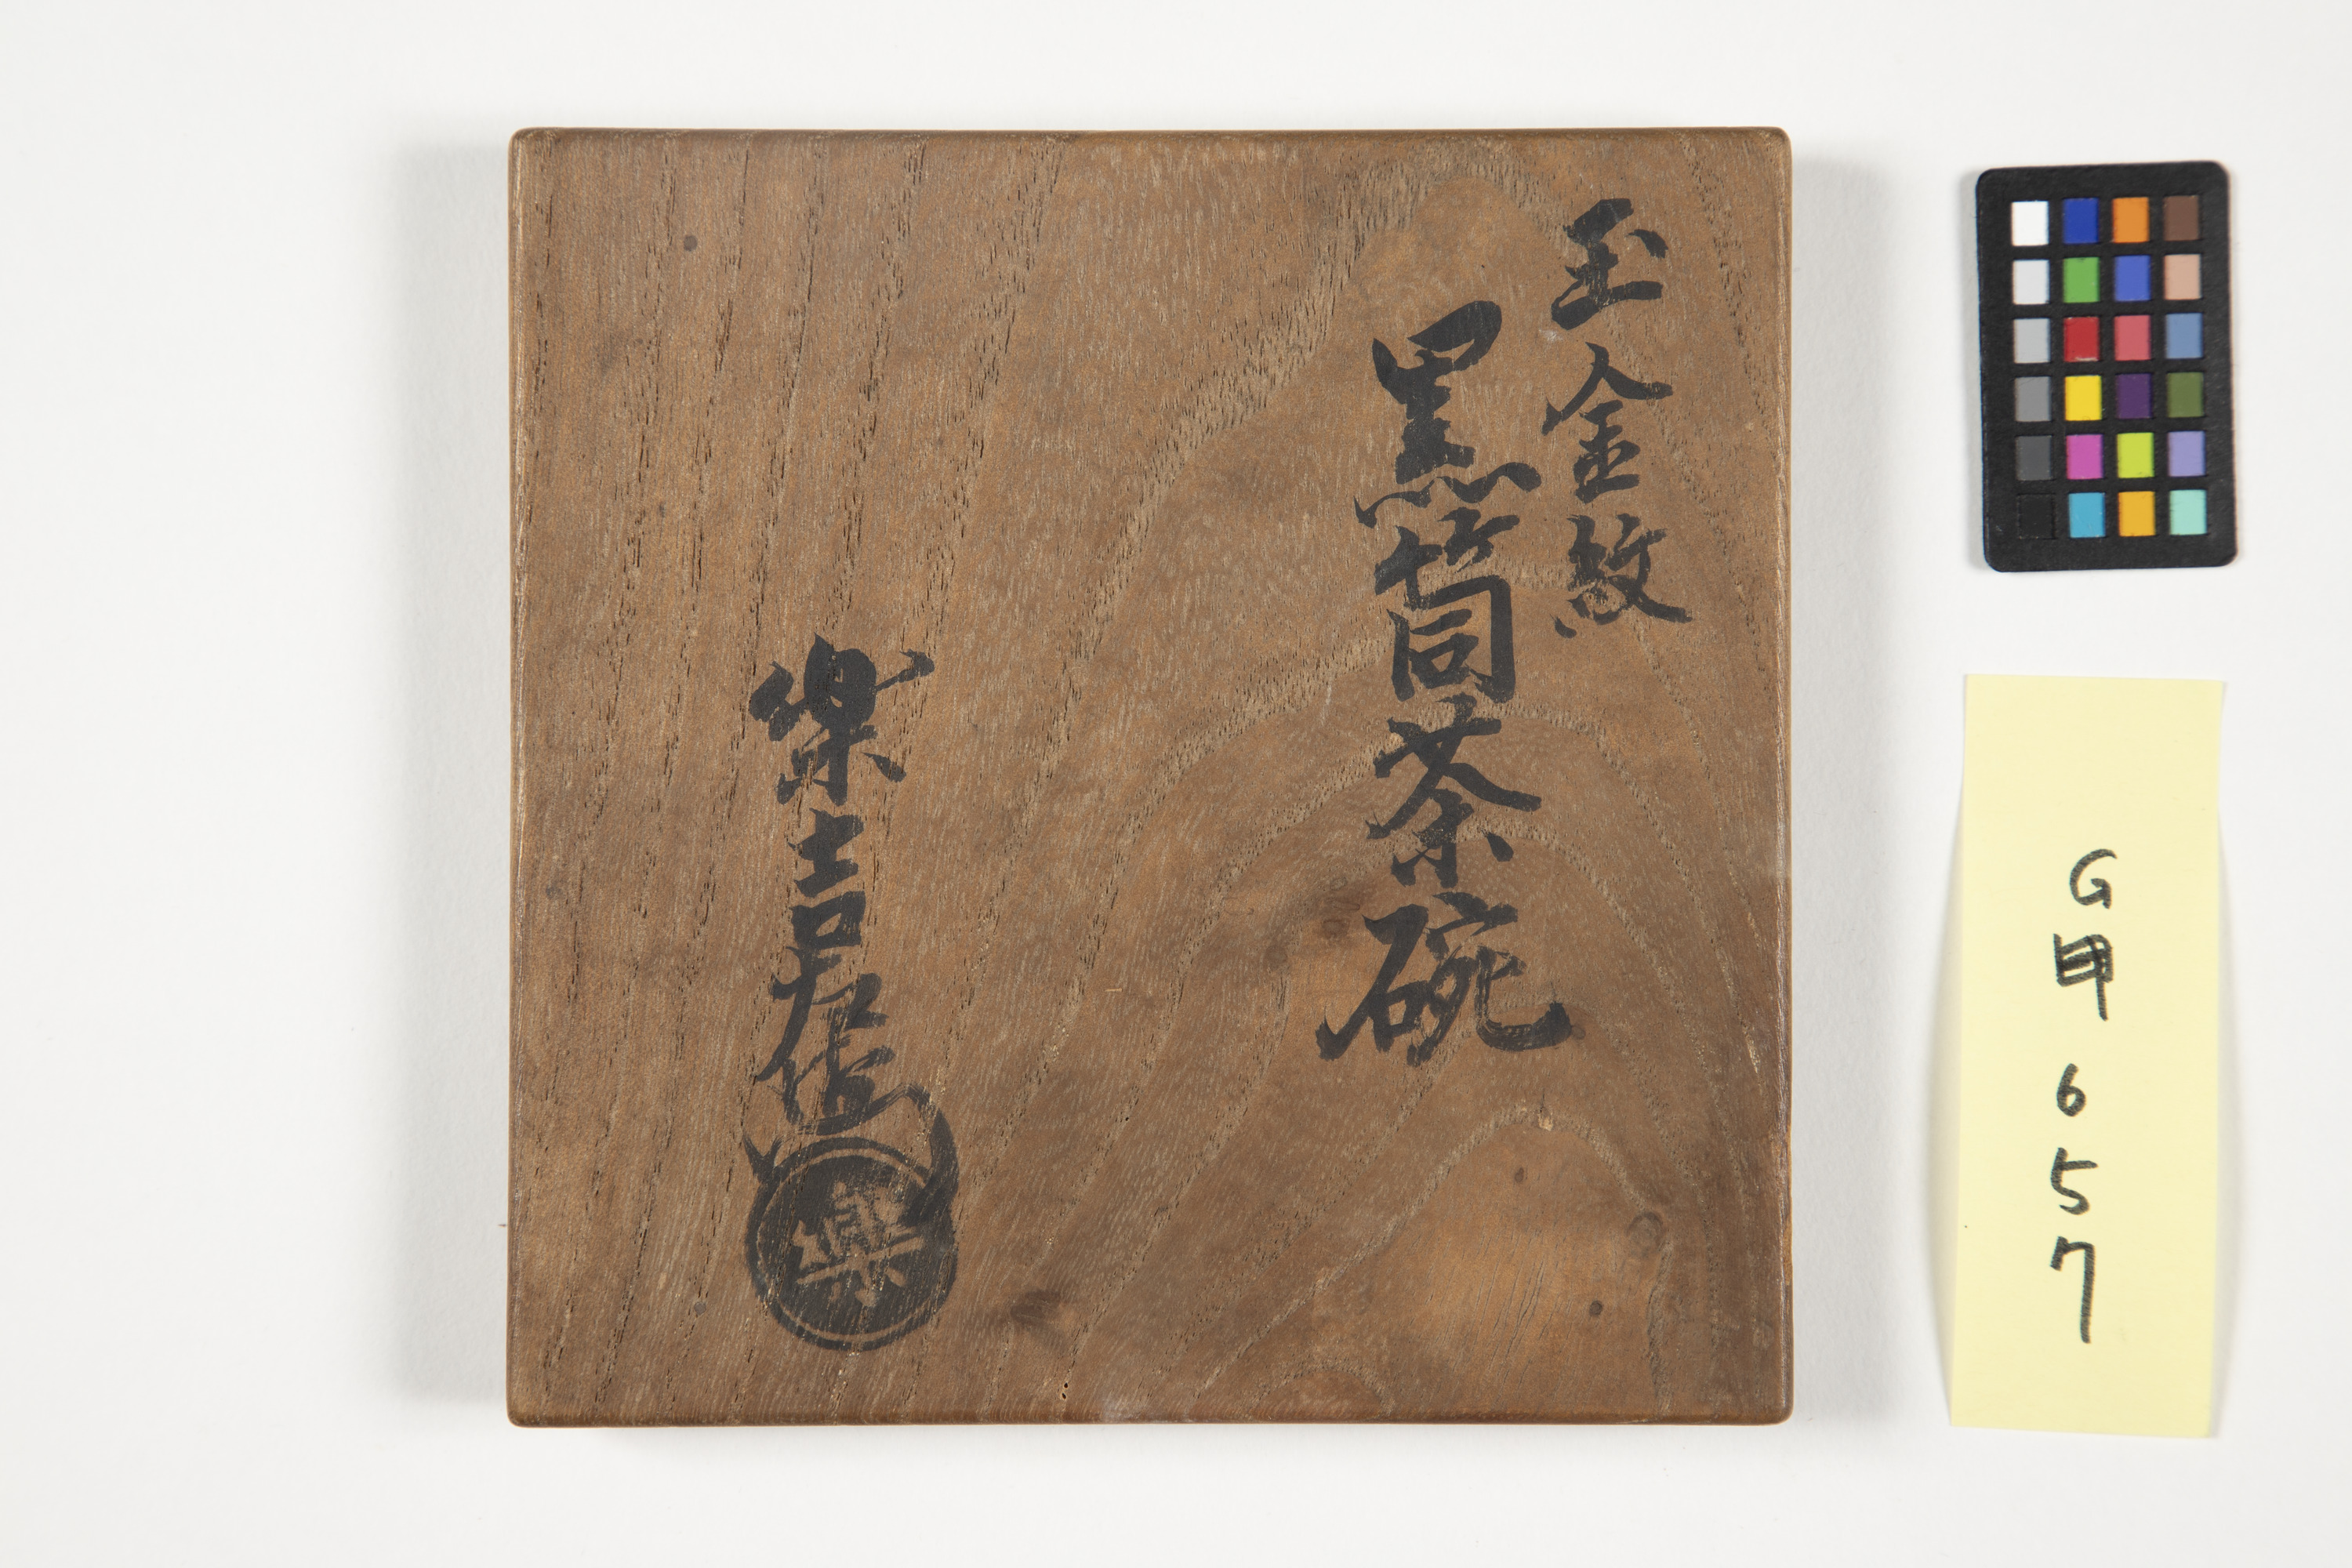 玉金紋
黒筒茶碗
樂吉左衛門
樂
G
657